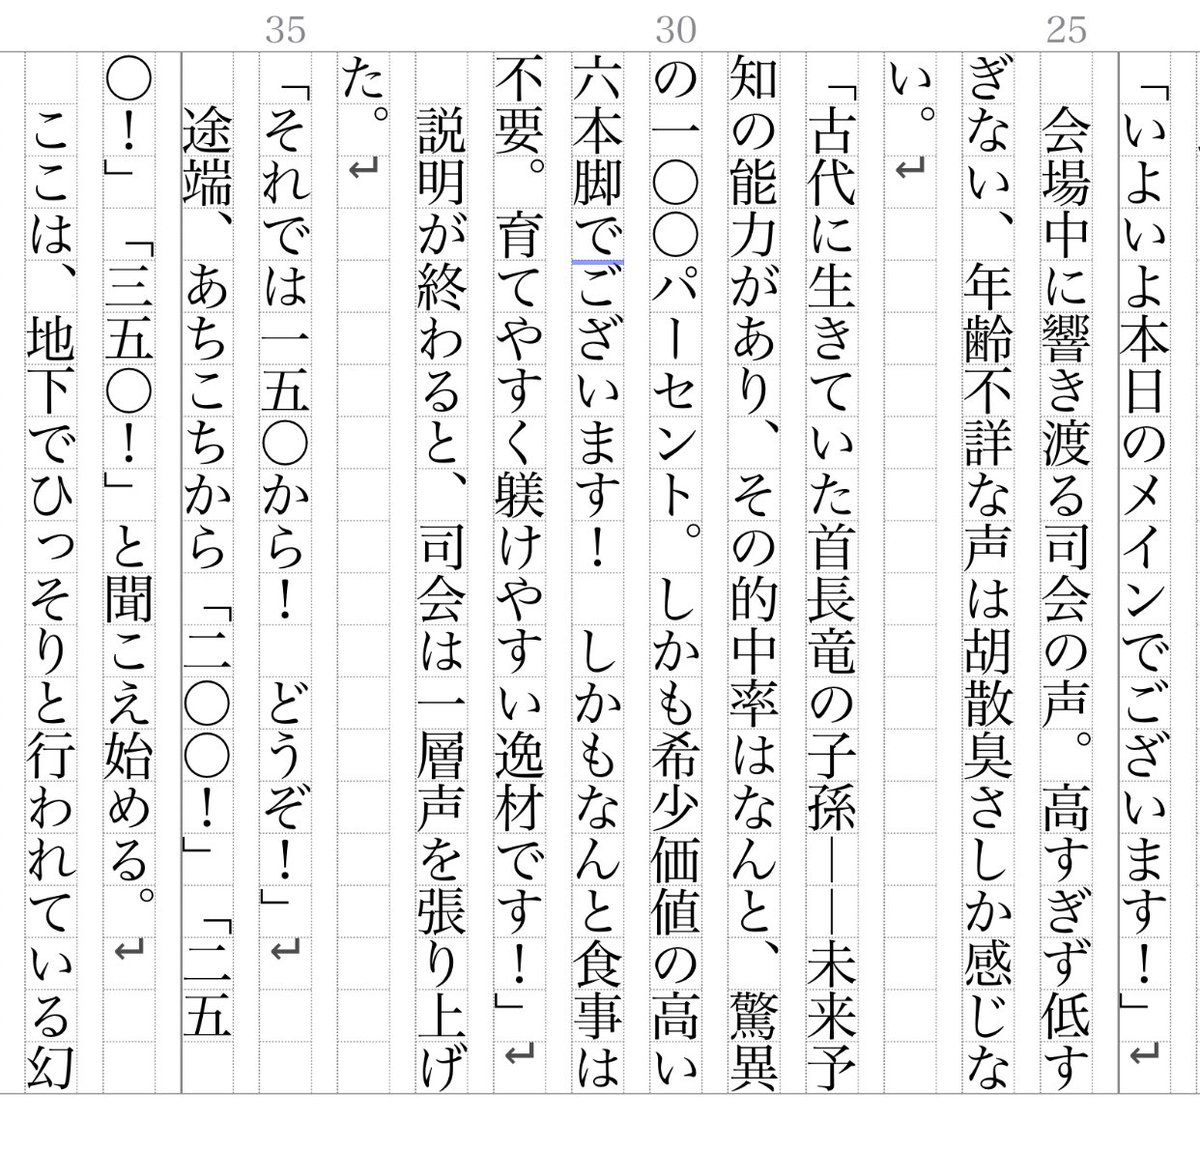 35 30 25
「いよいよ本日のメインでございます！」↵
　会場中に響き渡る司会の声。高すぎず低す
ぎない、年齢不詳な声は胡散臭さしか感じな
い。↵
「古代に生きていた首長竜の子孫――未来予
知の能力があり、その的中率はなんと、驚異
の一〇〇パーセント。しかも希少価値の高い
六本脚でございます！　しかもなんと食事は
不要。育てやすく躾けやすい逸材です！」↵
　説明が終わると、司会は一層声を張り上げ
た。↵
「それでは一五〇から！　どうぞ！」↵
　途端、あちこちから「二〇〇！」「二五
〇！」「三五〇！」と聞こえ始める。↵
　ここは、地下でひっそりと行われている幻